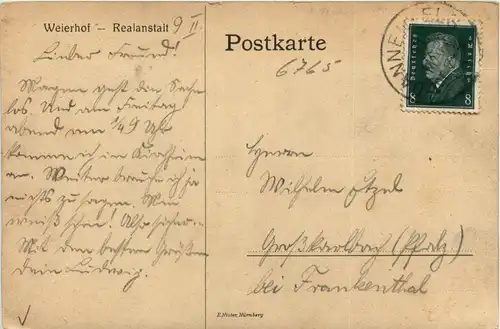 Weierhof — Realanstalt 9 II.
Lieber Freund!
Morgen geht die Sache
los. Und am Freitag
abend um 1/4 9 Uhr
komme ich in Kirchheim
an. Weiter brauche ich ja
nichts zu sagen. Man
weiß schon! Also sicher.
Mit den besten Grüßen
Dein Ludwig.
Postkarte
6765
Deutsches Reich
8 8
Herrn
Wilhelm Etzel
Großkarlbach (Pfalz)
bei Frankenthal
F. Nister, Nürnberg